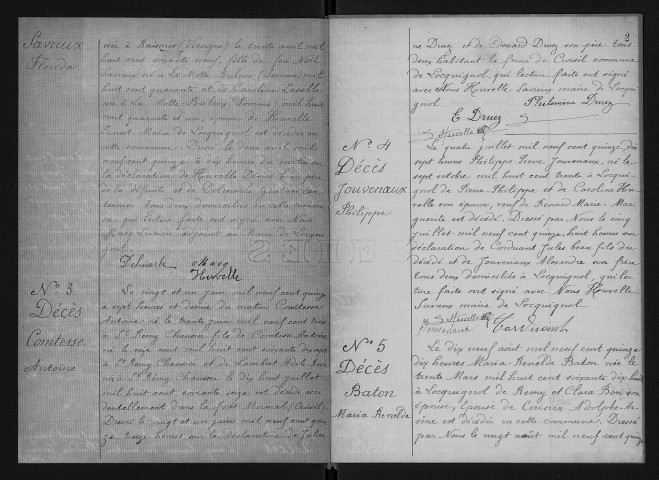 Savreux
Florida
née à Raismes le trente avril mil
huit cent soixante neuf, fille de feu Noël
Savreux né à La Motte (Somme) mil
huit cent quarante et de Caroline
née à La Motte (Somme) mil huit
cent quarante et un, épouse de Huvelle
Ernest Maire de Locquignol est décédée en
cette commune. Dressé le deux avril mil
neuf cent quinze à dix heures du matin sur
la déclaration de Huvelle Désiré beau père
de la défunte et de Delmarle Gustave can
tonnier tous deux domiciliés en cette commune
qui lecture faite ont signé avec Nous
adjoint au Maire de Locqui
gnol.
Delmarle
Huvelle
N° 3
Décès
Comtesse
Antoine
Le vingt et un juin mil neuf cent quinze
à sept heures et demie du matin Comtesse
Antoine né le trente juin mil neuf cent trois
à St Remy Chaussée fils de Comtesse Antoine
né le neuf août mil huit cent soixante
à St Remy Chaussée et de Lambert Adèle
née à St Remy Chaussée le dix huit juillet
mil huit cent soixante onze est décédé acci
dentellement dans la forêt Mormal
Dressé le vingt et un juin mil neuf cent quin
ze treize heures sur la déclaration de Julien
2
Druez et de Edouard Druez son père tous
deux habitant la ferme de commune
de Locquignol, qui lecture faite ont signé
avec Nous Huvelle Savreux maire de Locqui
gnol
Philomène Druez
E Druez
Huvelle
N° 4
Décès
Jouvenaux
Philippe
Le quatre juillet mil neuf cent quinze dix
sept heures Philippe Pierre Jouvenaux, né le
sept octobre mil huit cent trente à Locqui
gnol de Pierre Philippe et de Caroline Hu
velle son épouse, veuf de Renard Marie-Mar
guerite est décédé. Dressé par Nous le cinq
juillet mil neuf cent quinze, huit heures sur
déclaration de Jules beau fils du
décédé et de Jouvenaux Alexandre son frère
tous deux domiciliés à Locquignol, qui lec
ture faite ont signé avec Nous Huvelle
Savreux maire de Locquignol
Huvelle
Jouvenaux
N° 5
Décès
Baton
Maria Renelde
Le dix neuf août mil neuf cent quinze
dix heures Maria-Renelde Baton née le
trente Mars mil huit cent soixante dix huit
à Locquignol de Remy et Clara Bon son
épouse, épouse de Cerisier Adolphe-Ar
sène est décédée en cette commune. Dressé
par Nous le vingt août mil neuf cent quinze